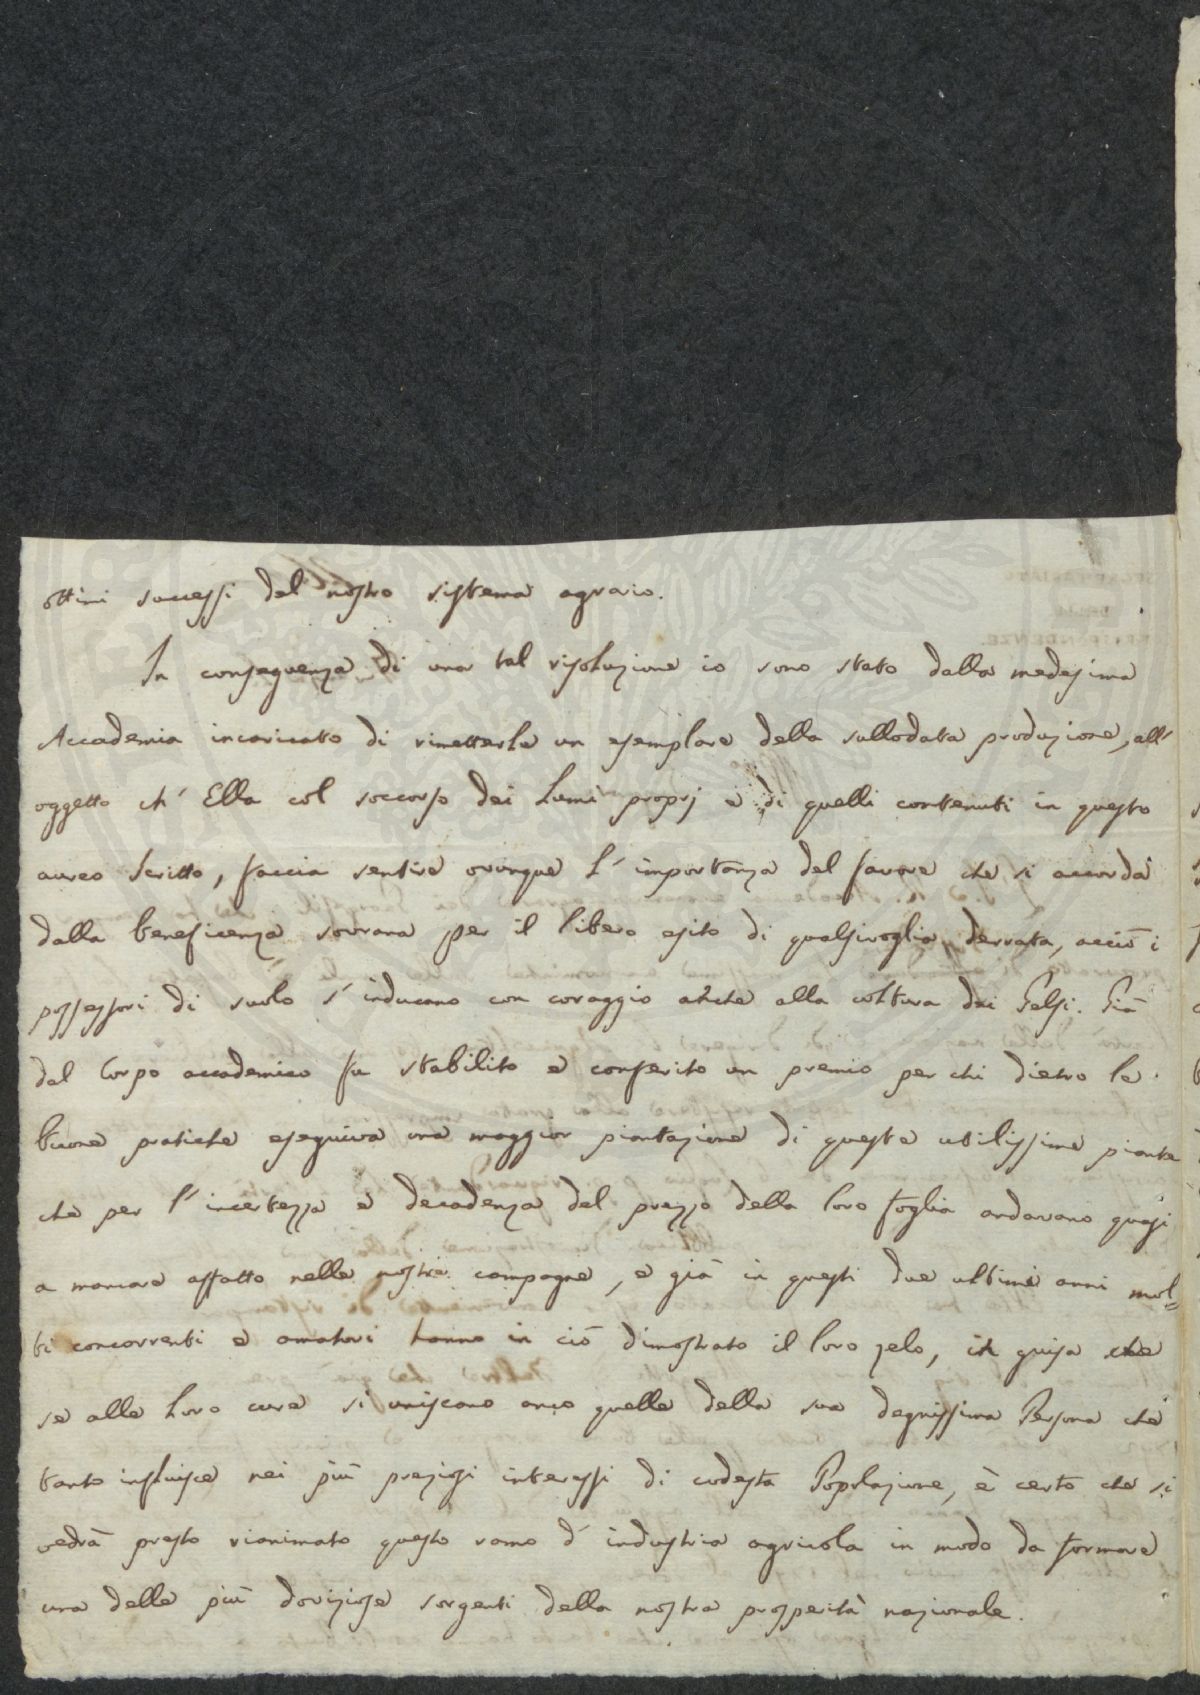 ottimi successi del nostro sistema agrario.
In conseguenza di una tal risoluzione io sono stato dalla medesima
Accademia incaricato di rimetterle un esemplare della sullodata produzione, all'
oggetto ch' Ella col soccorso dei Lumi proprj e di quelli contenuti in questo
aureo scritto, faccia sentire ovunque l' importanza del favore che si accorda
dalla beneficenza sovrana per il libero esito di qualsivoglia derrata, acciò i
possessori di suolo s' inducano con coraggio anche alla coltura dei Gelsi. Già
dal Corpo accademico fu stabilito e conferito un premio per chi dietro le
buone pratiche eseguiva una maggior piantazione di queste utilissime piante
che per l' incertezza e decadenza del prezzo della loro foglia andavano quasi
a mancare affatto nelle nostre campagne, e già in questi due ultimi anni mol=
ti concorrenti e amatori hanno in ciò dimostrato il loro zelo, in guisa che
se alle loro cure si uniscano anco quelle della sua degnissima Persona che
tanto influisce nei più preziosi interessi di codesta Popolazione, è certo che si
vedrà presto rianimato questo ramo d' industria agricola in modo da formare
una delle più doviziose sorgenti della nostra prosperità nazionale.